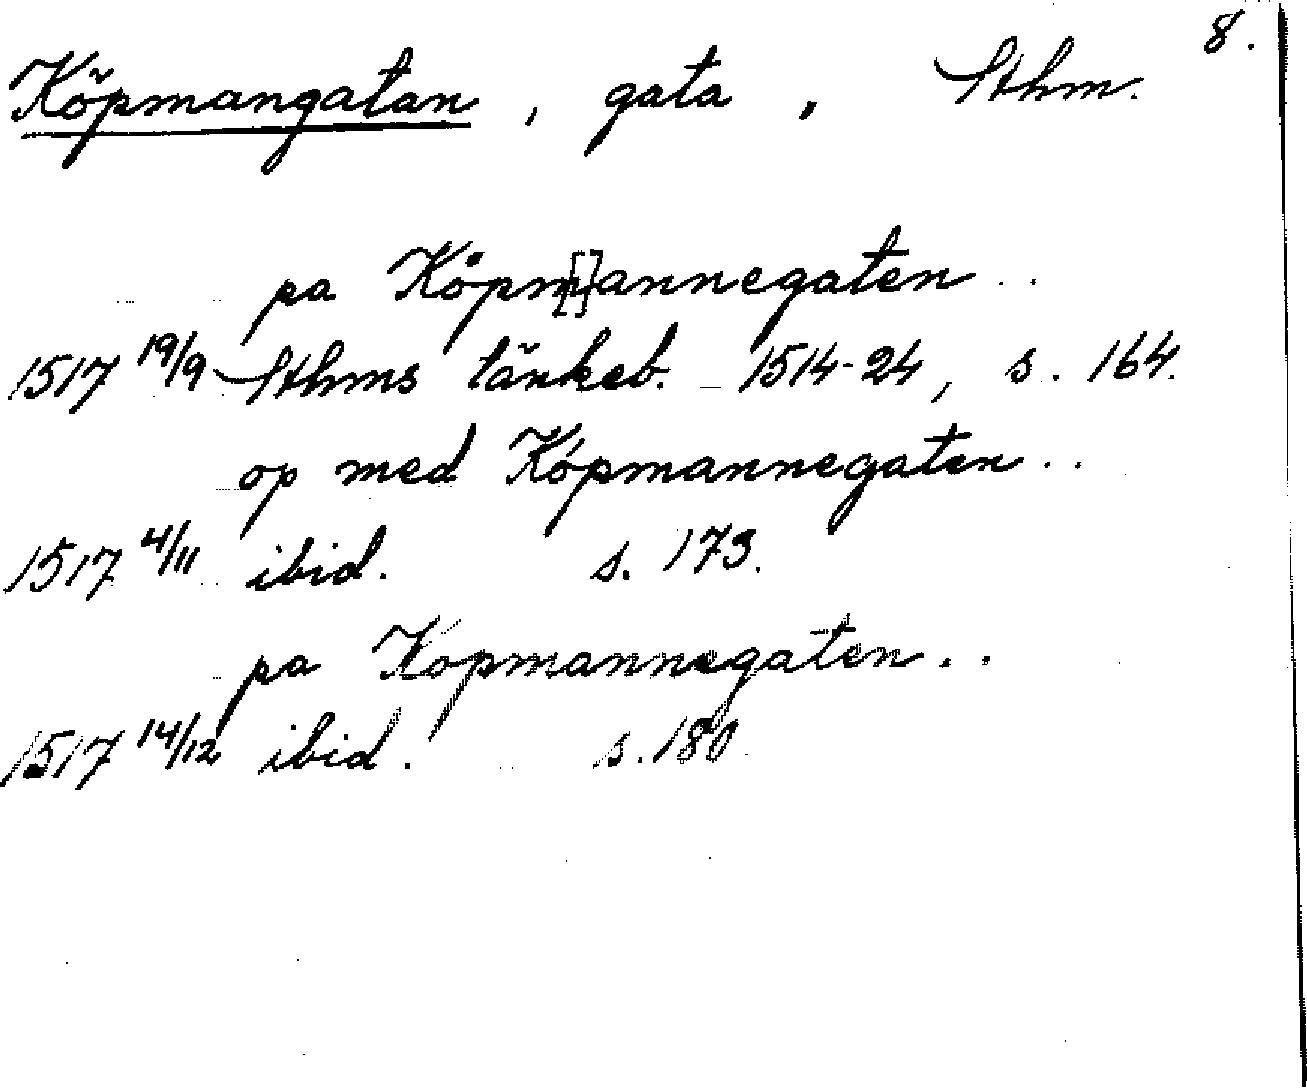 8.
Köpmangatan, gata, Sthm.
pa Köpm[]annegaten ..
1517 19/9 Sthms tänkeb. 1514-24, s. 164.
op med Köpmannegaten ..
1517 4/11 ibid. s. 173.
pa Kopmannegaten ..
1517 14/12 ibid. s. 180